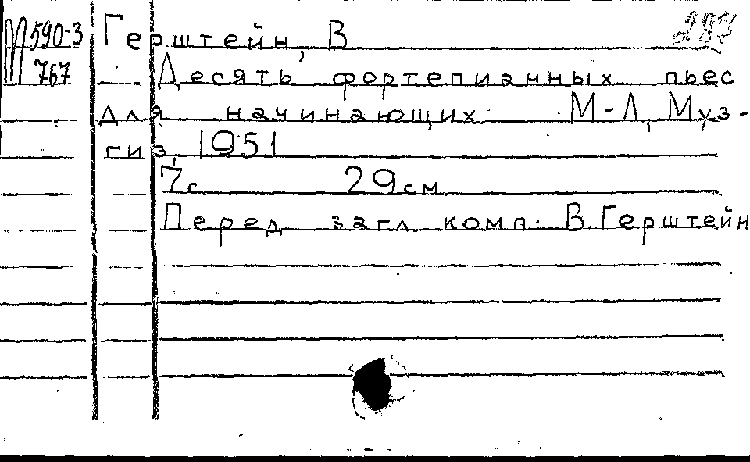 590-3 Герштейн, В
767 Десять фортепианных пьес
для начинающих. М-Л, Муз-
гиз, 1951
7с 29см
Перед загл. комп. В. Герштейн